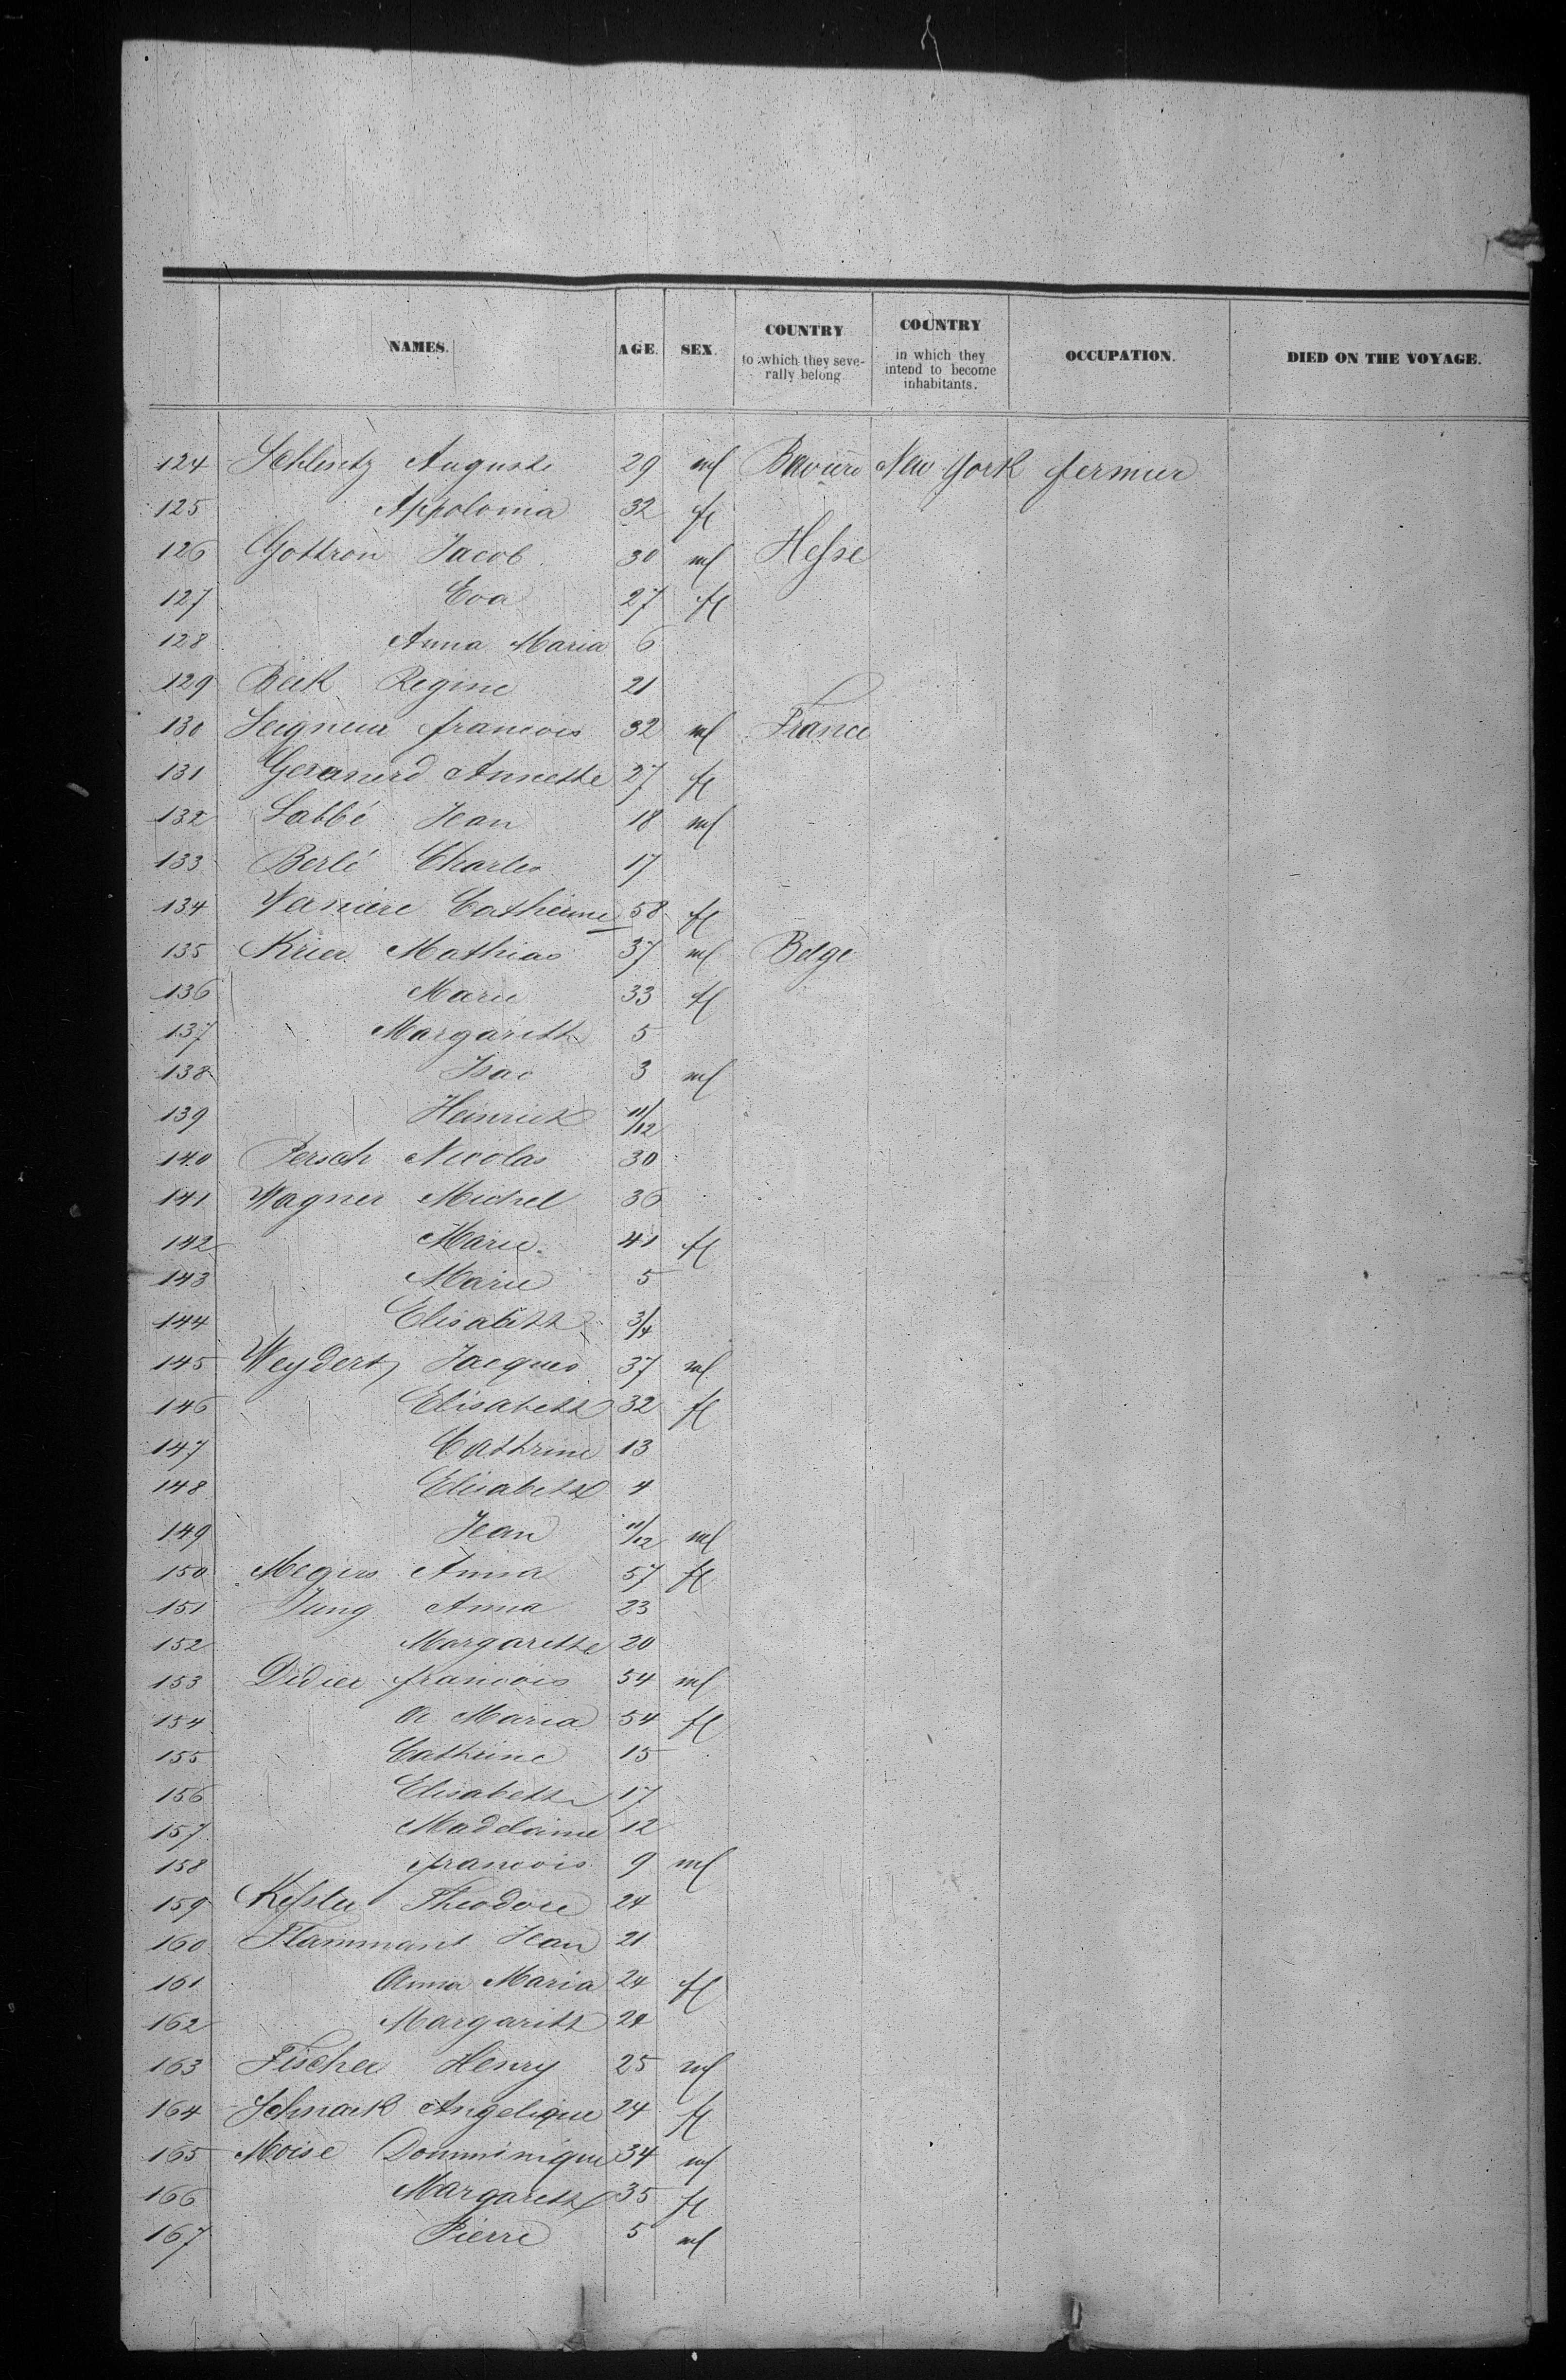 NAMES. AGE. SEX. COUNTRY to which they severally belong COUNTRY in which they intend to become inhabitants. OCCUPATION. DIED ON THE VOYAGE.
124 Auguste 29 ml Baviere New York fermier
125 Appolonia 32 fl
126 Gottron Jacob 30 ml Hesse
127 Eva 27 fl
128 Anna Maria 6
129 Beck Regine 21
130 Seigneur francois 32 ml France
131 Annette 27 fl
132 Labbé Jean 18 ml
133 Berlé Charles 17
134 Catherine 58 fl
135 Krier Mathias 37 ml Belge
136 Marie 33 fl
137 Margareth 5
138 Isac 3 ml
139 Heinrich 11/12
140 Persch Nicolas 30
141 Wagner Michel 36
142 Marie 41 fl
143 Marie 5
144 Elisabeth 3/4
145 Weydert, Jacques 37 ml
146 Elisabeth 32 fl
147 Cathrine 13
148 Elisabeth 4
149 Jean 11/12 ml
150 Anna 57 fl
151 Jung Anna 23
152 Margarethe 20
153 Didier francois 54 ml
154 A Maria 54 fl
155 Catherine 15
156 Elisabeth 17
157 Madelaine 12
158 francois 9 ml
159 Kessler Theodore 24
160 Flammant Jean 21
161 Anna Maria 24 fl
162 Margarith 24
163 Fischer Henry 25 ml
164 Angelique 24 fl
165 Moise Domminique 34 ml
166 Margareth 35 fl
167 Pierre 5 ml